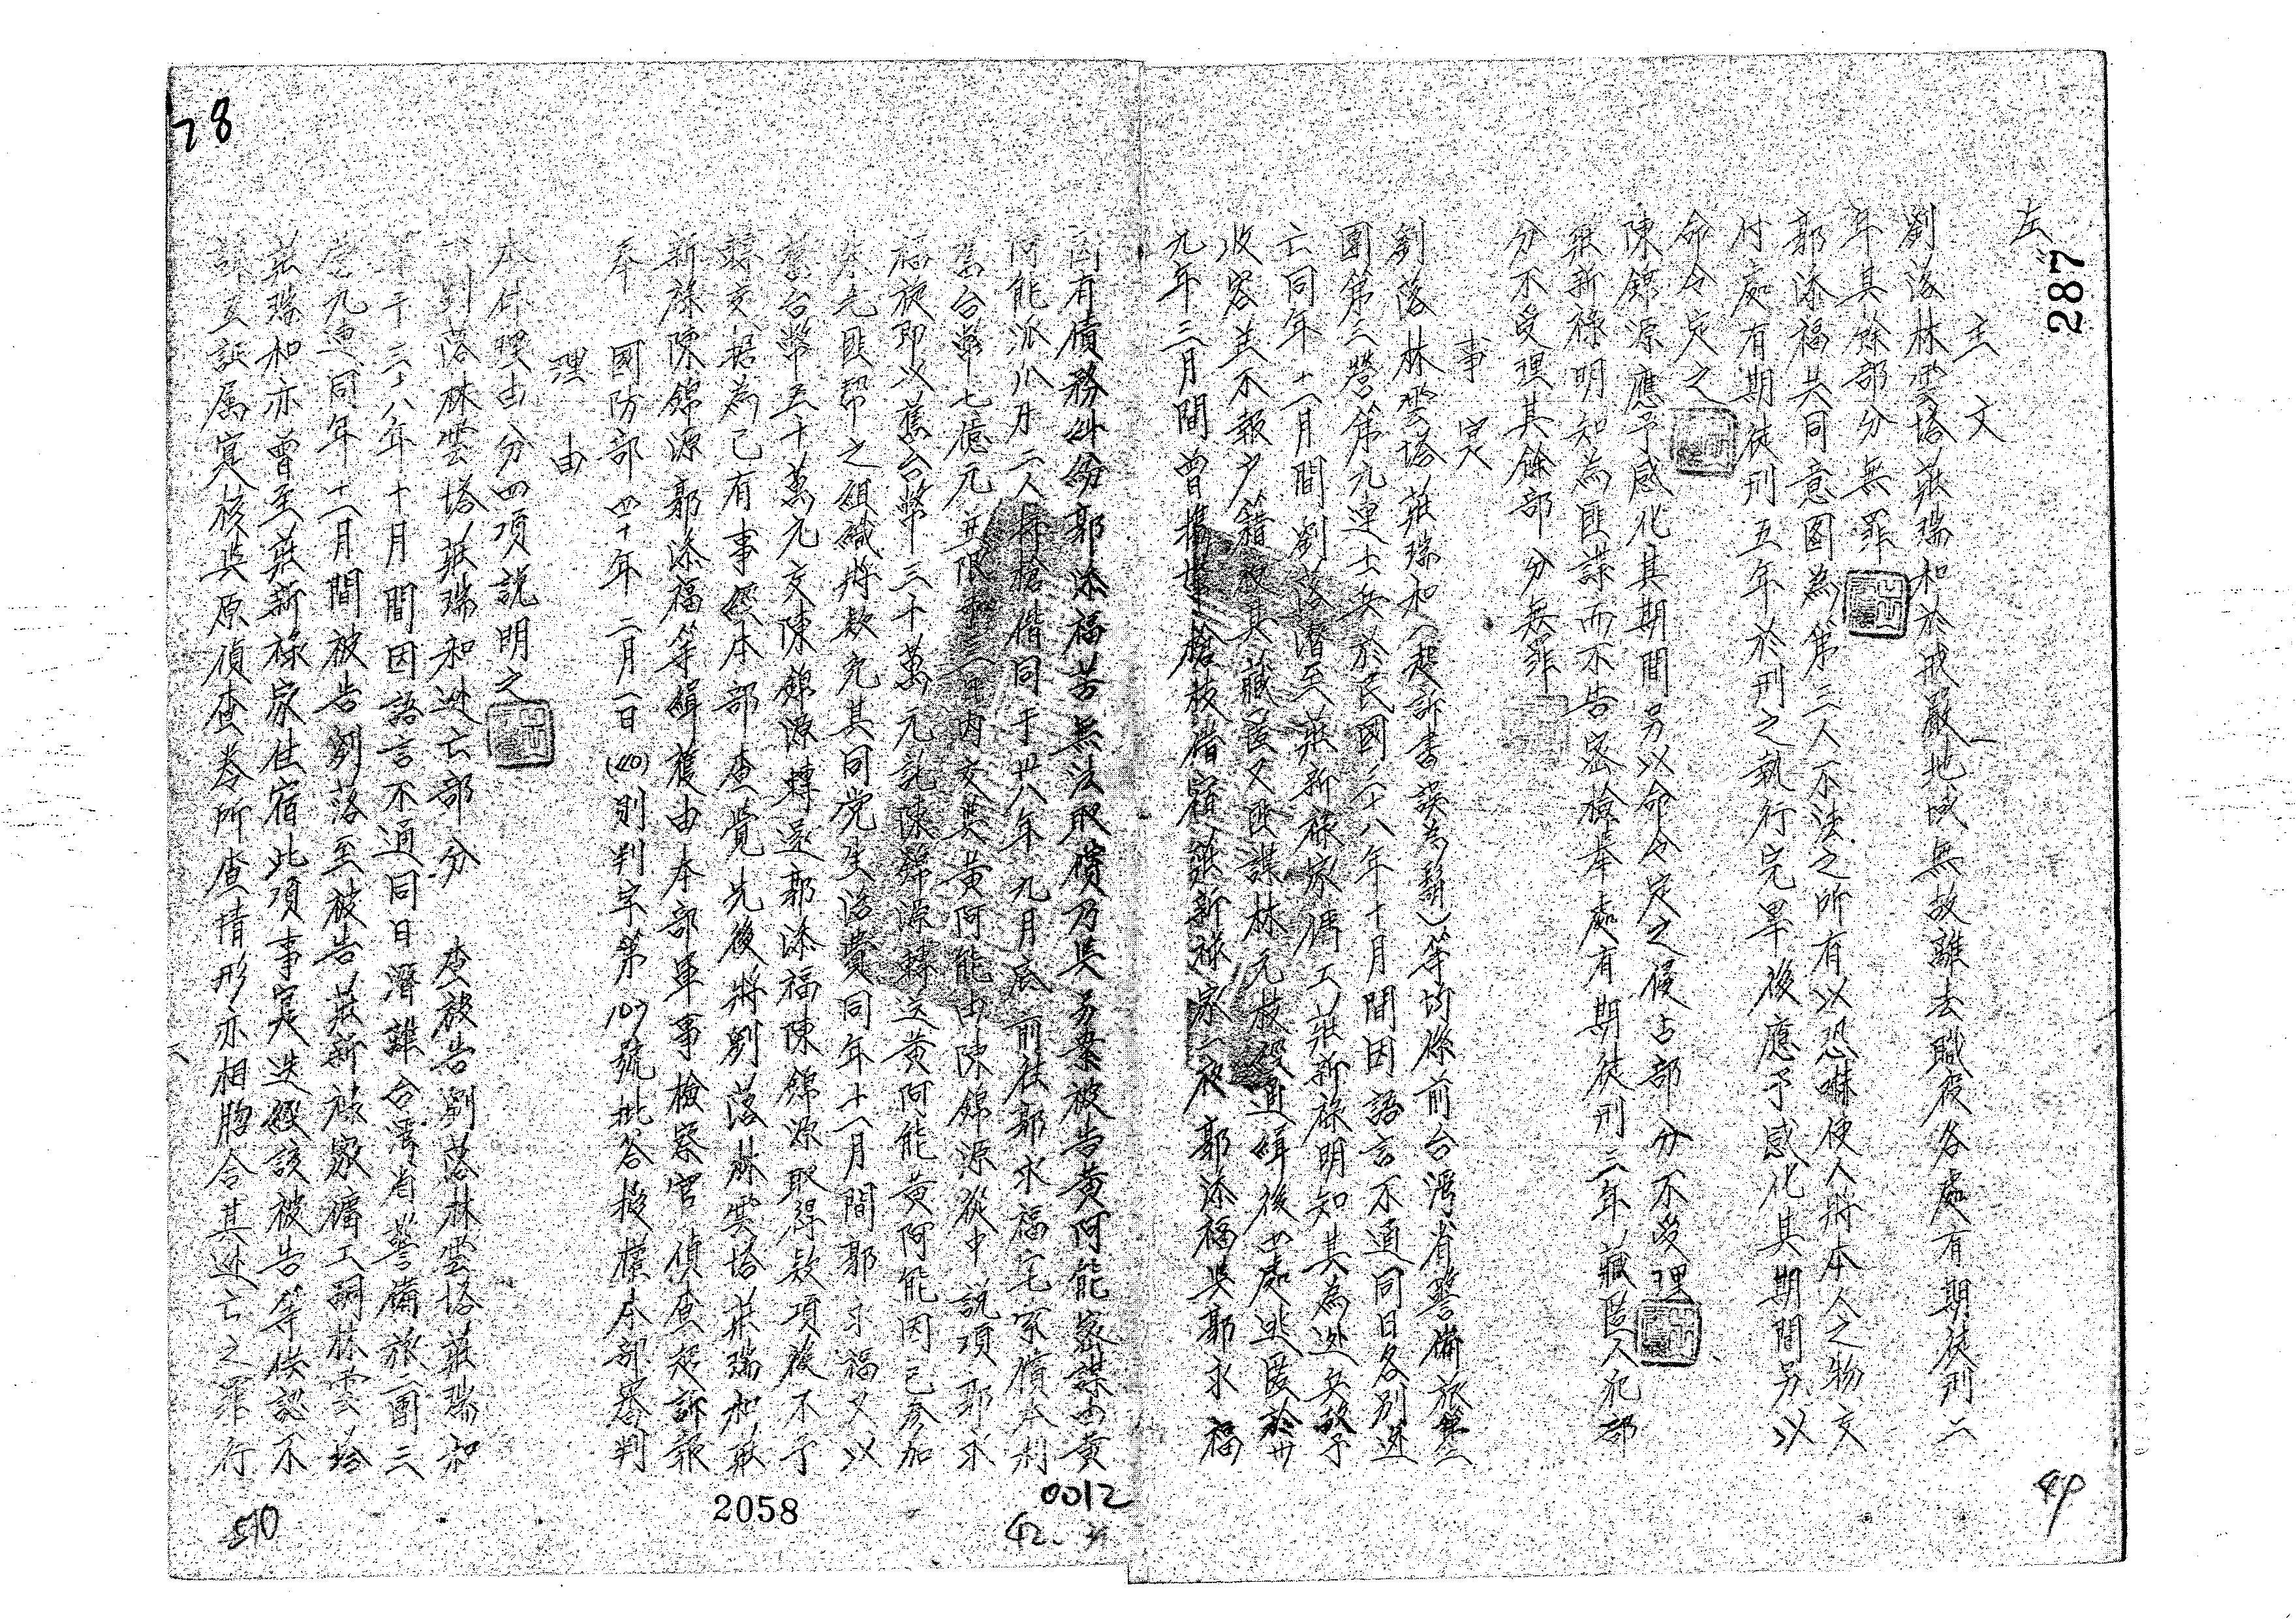 287
左
主文
劉落林雲塔莊瑞和於戒嚴地域無故離去職役各處有期徒刑二
年其餘部分無罪
郭添福共同意圖為第三人不法之所有以恐嚇使人將本人之物交
付處有期徒刑五年於刑之執行完畢後應予感化其期間另以
命令定之
陳錦源應予感化其期間另以命令定之侵占部分不受理
莊新祿明知為匪諜而不告密檢舉處有期徒刑三年藏匿人犯部
分不受理其餘部分無罪
事實
劉落林雲塔莊瑞和(起訴書誤為)等均係前台灣省警備旅第二
團第三營第九連士兵於民國三十八年十月間因語言不通同日各別逃
亡同年十二月間劉落潛至莊新祿家傭工莊新祿明知其為逃兵竟予
收容並不報戶籍 其藏匿又匪諜林元枝 通緝後四處逃匿於卅
九年三月間曾攜 槍枝借宿莊新祿家一夜郭添福與郭永福
因有債務糾紛郭添福苦無法取償乃與另案被告黃阿能密謀由黃
阿能派八牙二人持槍偕同于卅八年九月底前往郭永福宅索債本利
舊台幣七億元並限 內交其黃阿能由陳錦源從中說項郭永
福旋即以舊台幣三千萬元託陳錦源轉交黃阿能黃阿能因已參加
朱毛匪幫之組織將款充其同党生活費同年十二月間郭永福又以
舊台幣五十萬元交陳錦源轉還郭添福陳錦源取得款項後不予
轉交据為己有事經本部查覺先後將劉落林雲塔莊瑞和莊
新祿陳錦源郭添福等緝獲由本部軍事檢察官偵查起訴報
奉
國防部四十年二月一日(40)則判字第107號批答授權本部審判
理由
本件理由分四項說明之
劉落林雲塔莊瑞和逃亡部分 查被告劉落林雲塔莊瑞和
于三十八年十月間因語言不通同日潛離台灣省警備旅二團三
營九連同年十二月間被告劉落至被告莊新祿家傭工嗣林雲塔
莊瑞和亦曾至莊新祿家住宿此項事實迭經該被告等供認不
諱互証属實核與原偵查卷所查情形亦相脗合其逃亡之罪行
78
2058
0012
42
510
49